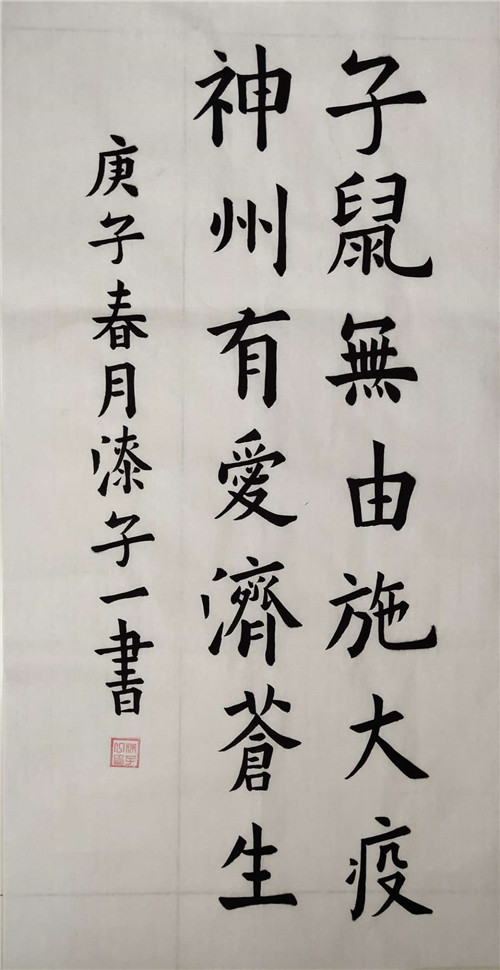 子鼠無由施大疫
神州有愛濟蒼生
庚子春月漆子一書